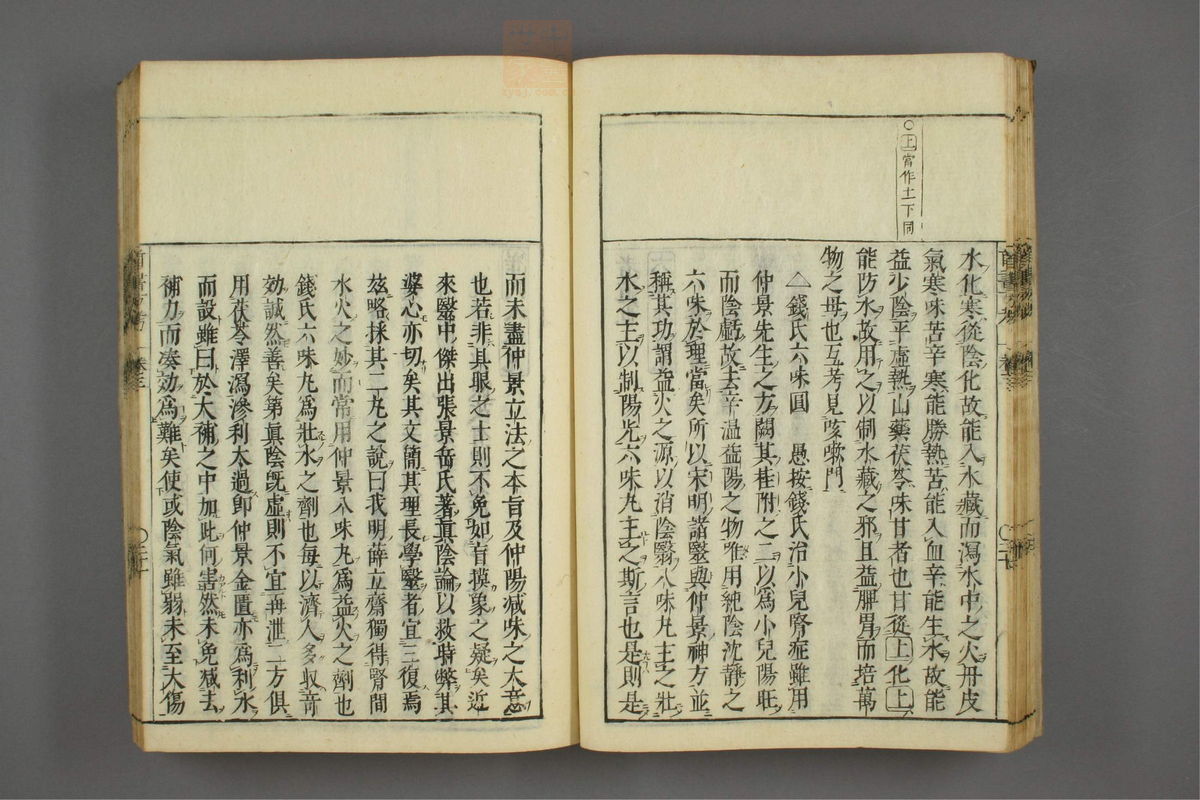 ○上當作土下同
水化寒從陰化故能入水藏而瀉水中之火丹皮
氣寒味苦辛寒能勝熱苦能入血辛能生水故能
益少陰平虛熱山藥茯苓味甘者也甘從上化上
能防水故用之以制水藏之邪且益脾胃而培萬
物之母也互考見咳嗽門
△錢氏六味圓 愚按錢氏治小兒腎症雖用
仲景先生之方闕其桂附之二以爲小兒陽旺
而陰虛故去辛温益陽之物唯用純陰沈靜之
六味於理當矣所以宋明諸毉與仲景神方並
稱其功謂益火之源以消陰翳八味丸主之壯
水之主以制陽光六味丸主之斯言也是則是
而未盡仲景立法之本旨及仲陽減味之大意
也若非具眼之士則不免如盲摸象之疑矣近
來毉中傑出張景岳氏著眞陰論以救時弊其
婆心亦切矣其文簡其理長學毉者宜三復焉
玆略採其二丸之說曰我明薛立齋獨得腎間
水火之妙而常用仲景八味丸爲益火之劑也
錢氏六味丸爲壯水之劑也每以濟人多収竒
効誠然善矣第眞陰旣虛則不宜再泄二方俱
用茯苓澤瀉滲利太過卽仲景金匱亦爲利水
而設雖曰於大補之中加此何害然未免减去
補力而凑効爲難矣使或陰氣雖弱未至大傷